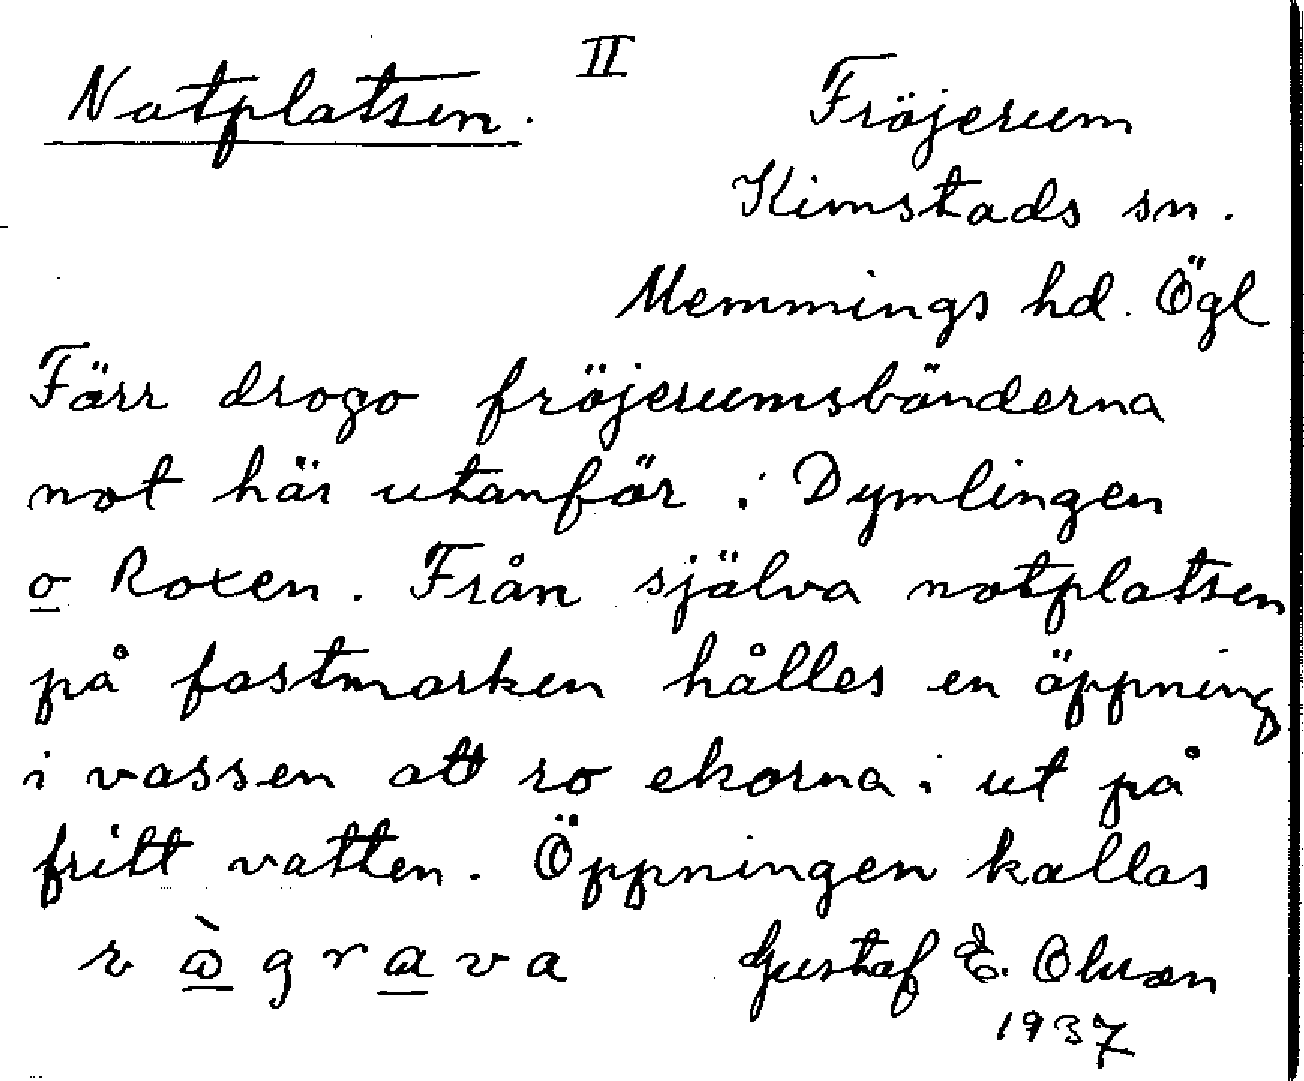 Notplatsen. II
Fröjerum
Kimstads sn.
Memmings hd. Ögl
Förr drogo fröjerumsbönderna
not här utanför i Dymlingen
o Roxen. Från själva notplatsen
på fastmarken hålles en öppning
i vassen att ro ekorna i ut på
fritt vatten. Öppningen kallas
grava Gustaf E. Olsson
1937